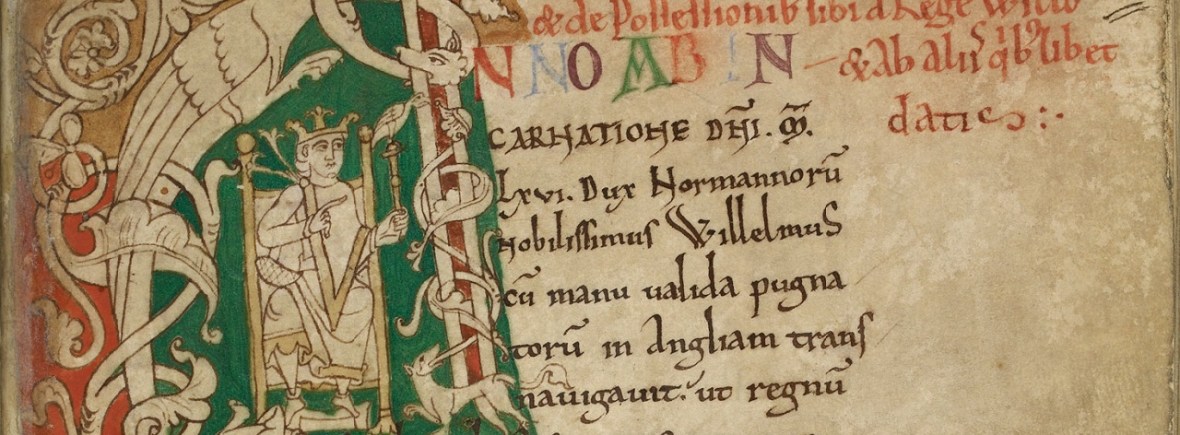 & de Possessionib sibi a Rege Willo
NNO AB IN
— & ab aliis q̇b᷒libet
CARNATIONE DN̄I. M̄.
datis :.
lxvi. Dux Normannorū
nobilissimus Willelmus
cū manu ualida pugna
torū in Angliam trans
nauigauit. ut regnū